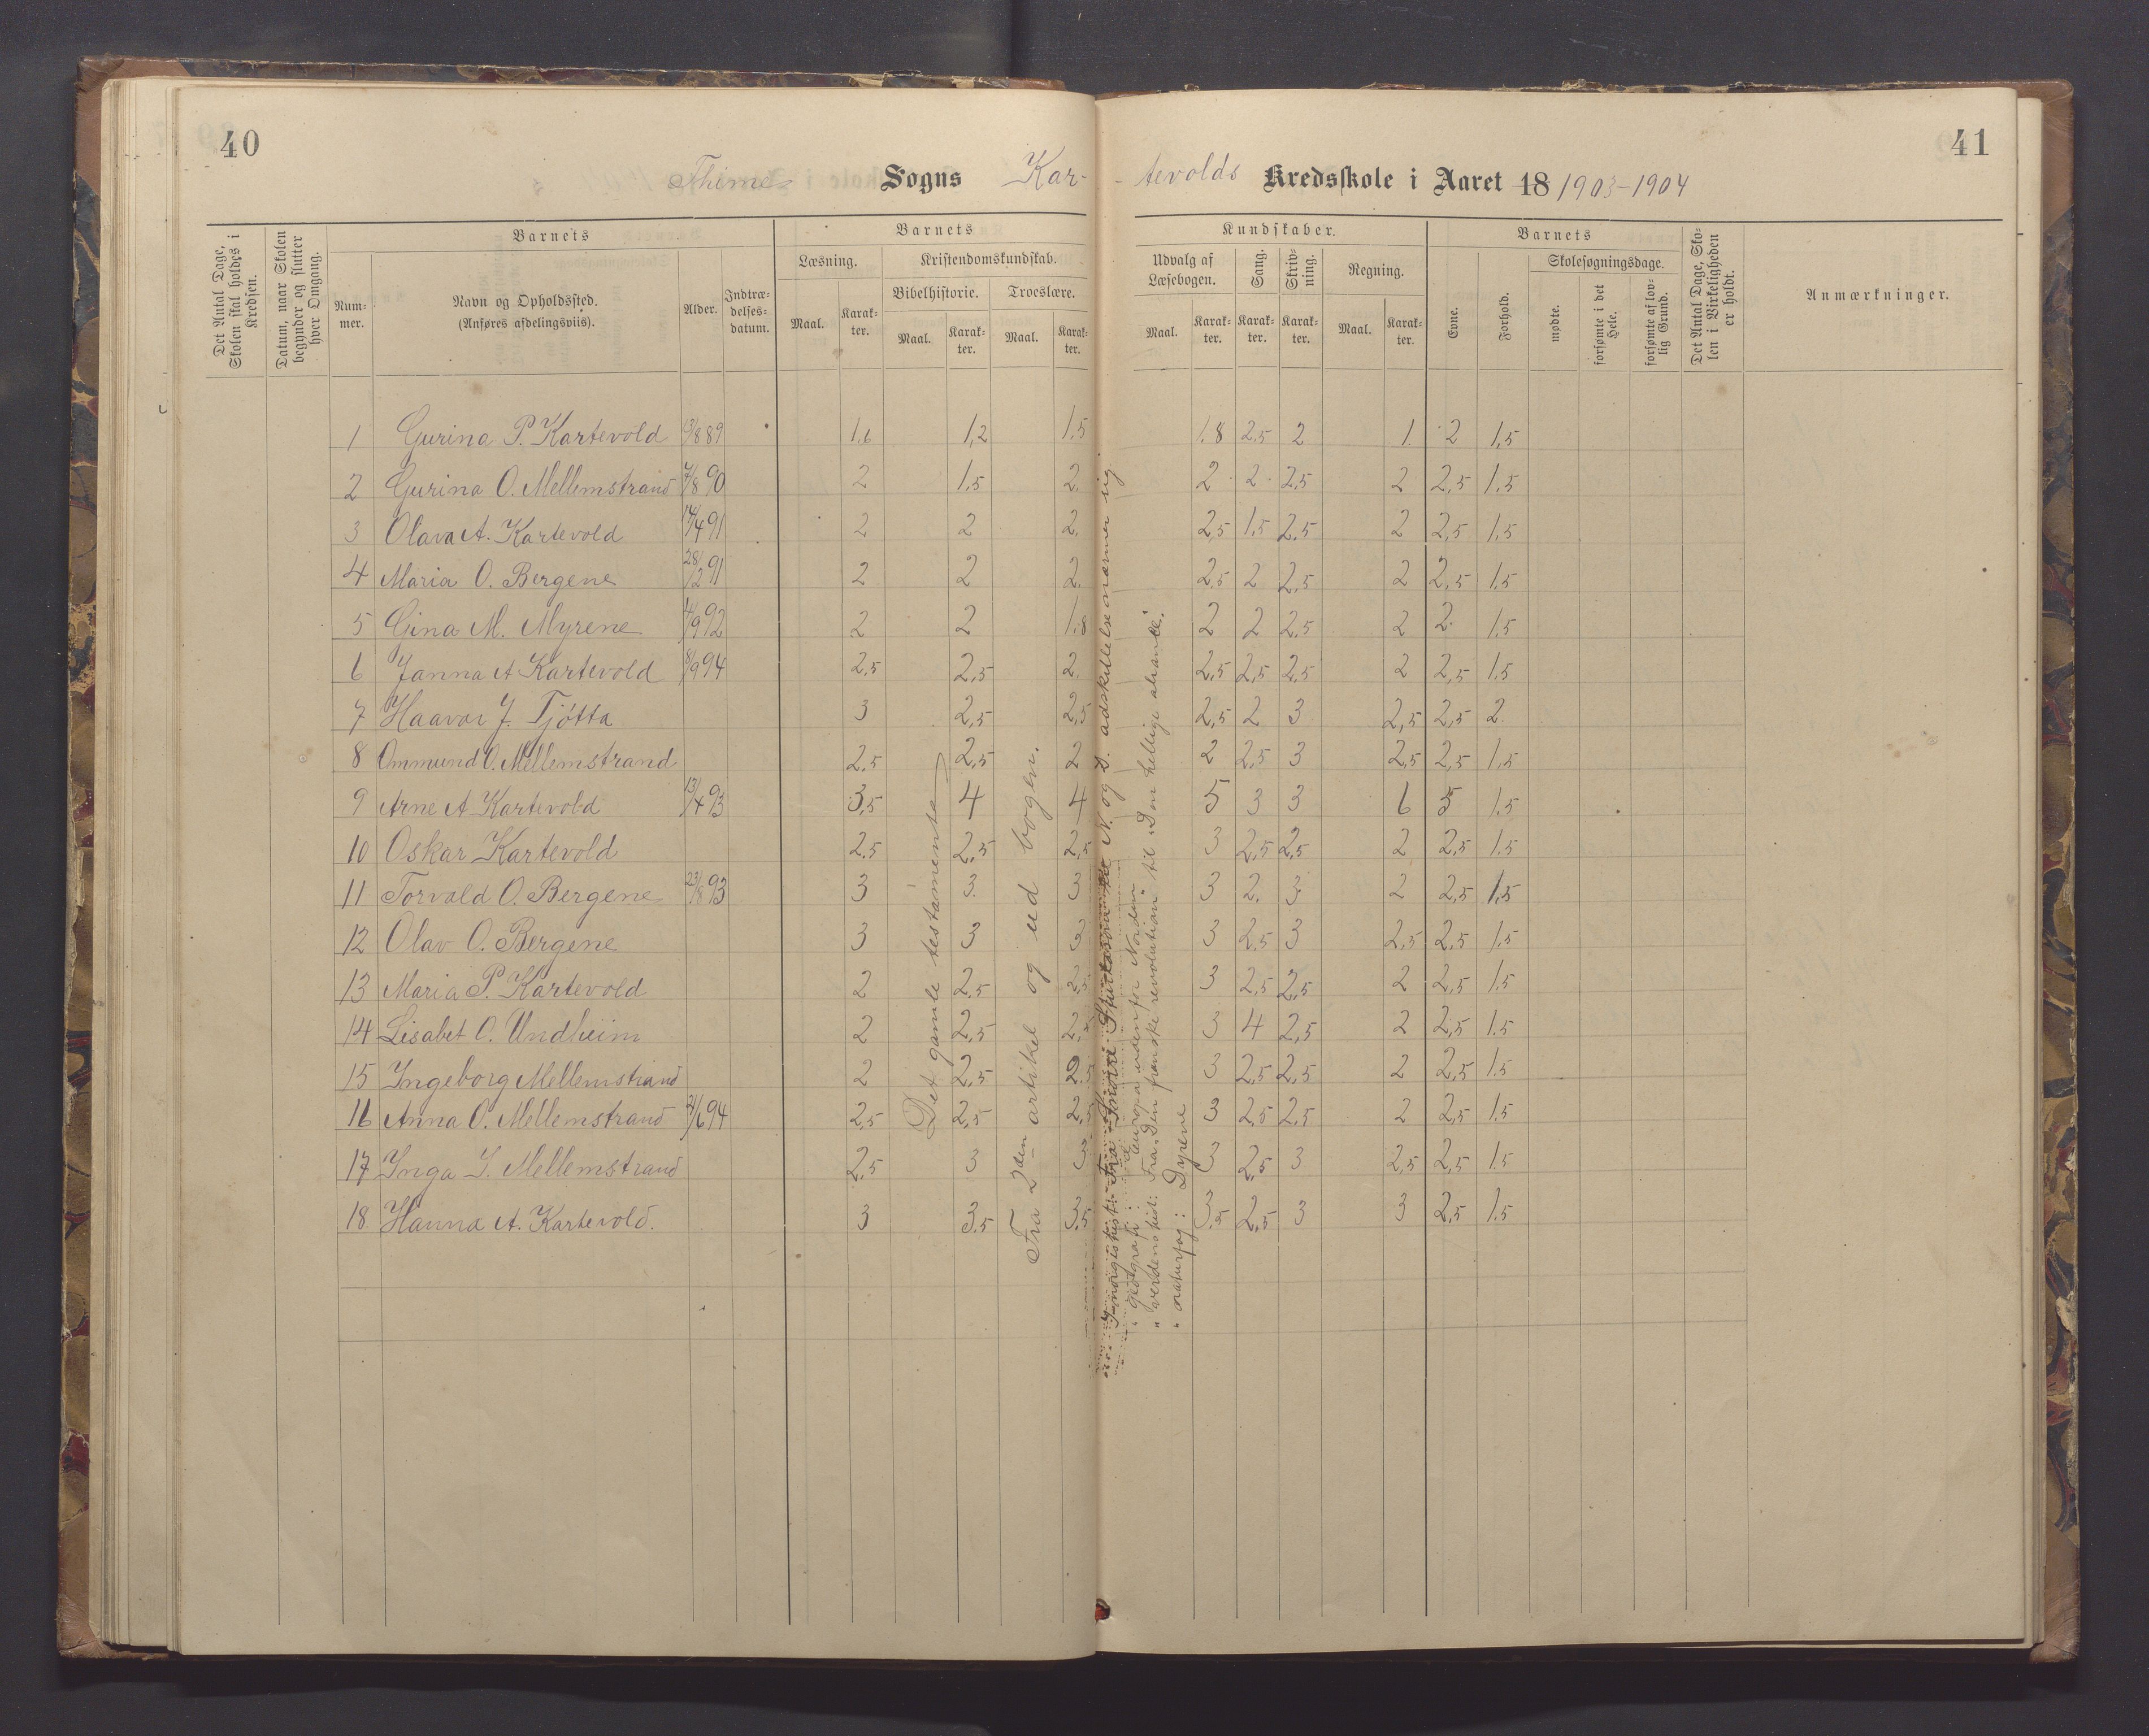 40
41
Thime Sogns Kar- -tevolds Kredsskole i Aaret 18 1903-1904
Det Antal Dage, Skolen skal holdes i Kredsen.
Datum, naar Skolen begynder og slutter hver Omgang.
Barnets
Nummer.
Navn og Opholdssted.
(Anføres afdelingsviis).
Alder.
Indtrædelsesdatum.
Barnets
Læsning.
Maal. Karakter.
Kristendomskundskab.
Bibelhistorie. Troeslære.
Maal. Karakter. Maal. Karakter.
Kundskaber.
Udvalg af Læsebogen.
Maal. Karakter.
Sang.
Karakter.
Skrivning.
Karakter.
Regning.
Maal. Karakter.
Barnets
Evne.
Forhold.
Skolesøgningsdage.
mødte.
forsømte i det Hele.
forsømte af lovlig Grund.
Det Antal Dage, Skolen i Virkeligheden er holdt.
Anmærkninger.
1 Gurina P. Kartevold 13/8 89 1,6 1,2 1,5 1,8 2,5 2 1 2 1,5
2 Gurina O. Mellemstrand 7/8 90 2 1,5 2 2 2 2,5 2 2,5 1,5
3 Olava A. Kartevold 14/4 91 2 2 2 2,5 1,5 2,5 2 2,5 1,5
4 Maria O. Bergene 28/2 91 2 2 2 2,5 2 2,5 2 2,5 1,5
5 Gina M. Myrene 4/9 92 2 2 1,8 2 2 2,5 2 2 1,5
6 Janna A Kartevold 8/9 94 2,5 2,5 2 2,5 2,5 2,5 2 2,5 1,5
7 Haavar J. Tjøtta 3 2,5 2,5 2,5 2 3 2,5 2,5 2
8 Ommund O. Mellemstrand 2,5 2,5 2 2 2,5 3 2,5 2,5 1,5
9 Arne A Kartevold 13/4 93 3,5 4 4 5 3 3 6 5 1,5
10 Oskar Kartevold 2,5 2,5 2,5 3 2,5 2,5 2 2,5 1,5
11 Torvald O. Bergene 23/8 93 3 3 3 3 2 3 2 2,5 1,5
12 Olav O. Bergene 3 3 3 3 2,5 3 2,5 2,5 1,5
13 Maria P. Kartevold 2 2,5 2,5 3 2,5 2,5 2 2,5 1,5
14 Lisabet O. Undheim 2 2,5 2,5 3 4 2,5 2 2,5 1,5
15 Ingeborg Mellemstrand 2 2,5 2,5 3 2,5 2,5 2 2,5 1,5
16 Anna O. Mellemstrand /6 94 2,5 2,5 2,5 3 2,5 2,5 2 2,5 1,5
17 Inga I. Mellemstrand 2,5 3 3 3 2,5 3 2,5 2,5 1,5
18 Hanna A. Kartevold. 3 3,5 3,5 3,5 2,5 3 3 2,5 1,5
Det gamle testamente
Fra 2den artikel og ud bogen.
I norgeshist: Fra Snorre Sturlason til N. og D. adskillelse nærmer sig
" geografi: Europa udenfor Norden
" verdenshist: Fra "Den franske revolution" til "Den hellige aliance".
" naturfag: Dyrene